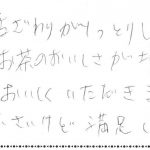 舌ざわりがしっとりし
お茶のおいしさがち
おいしくいただきま
さいけど満足し